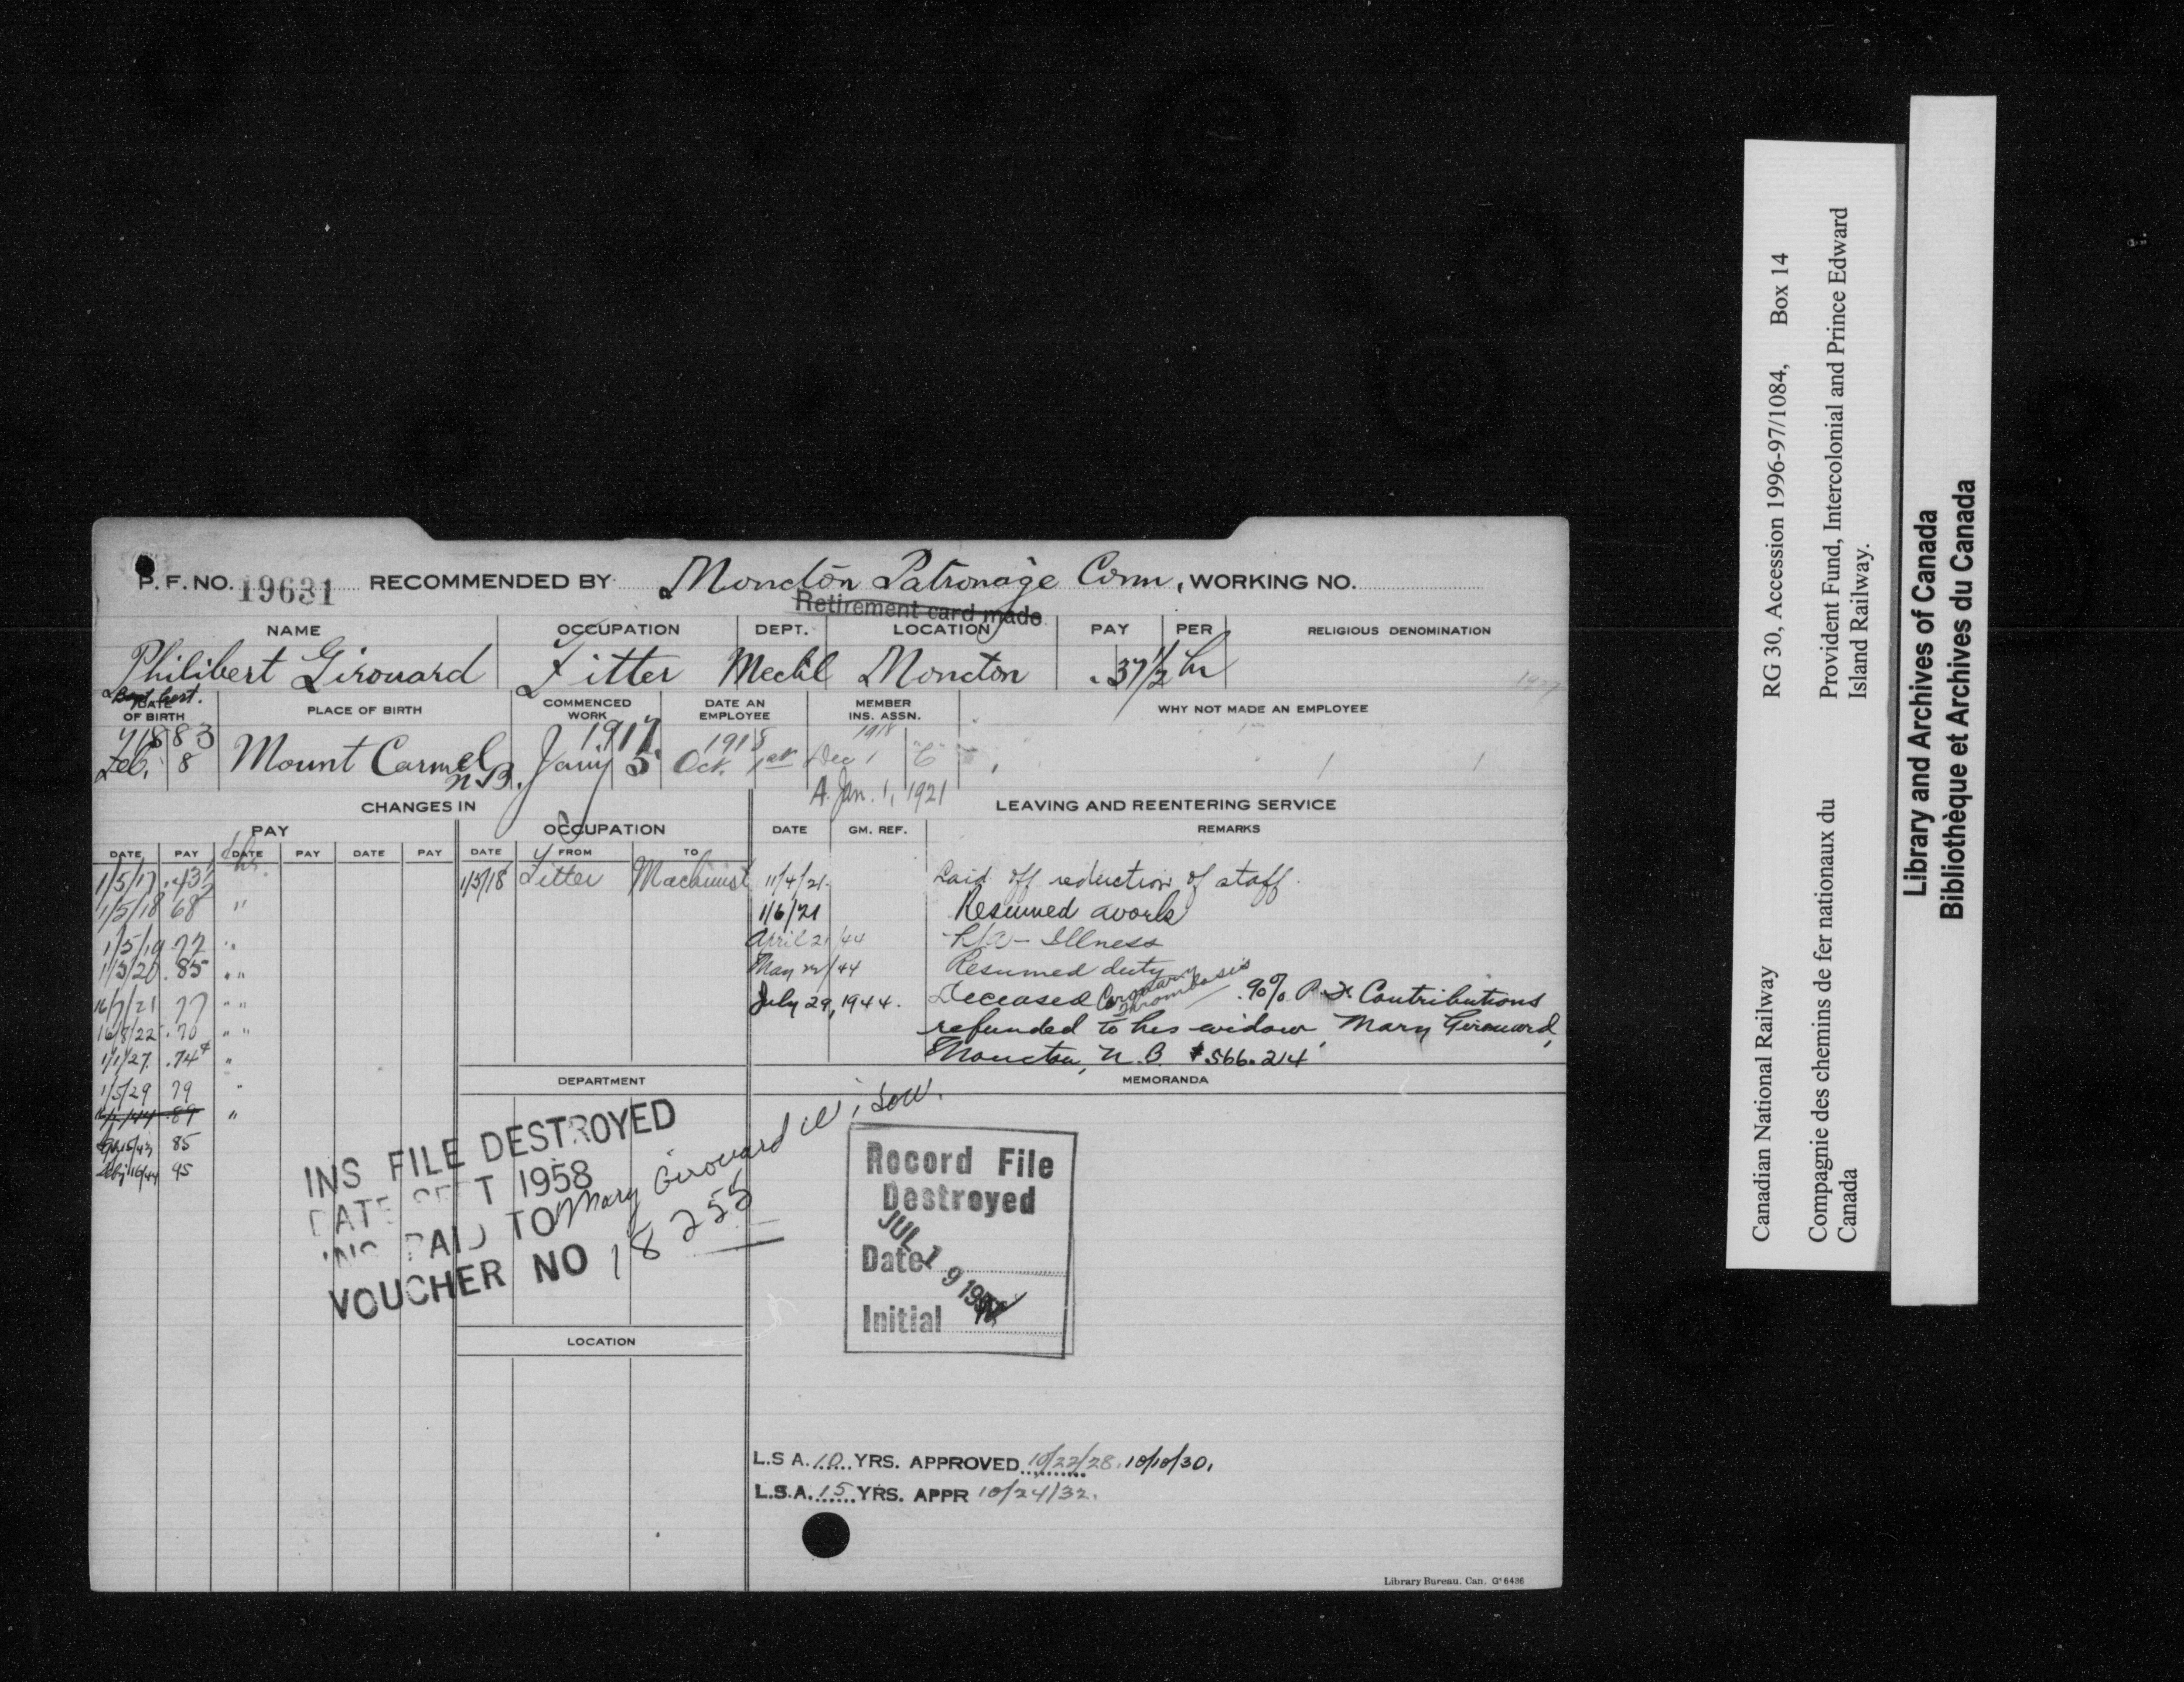 P. F. NO. 19631 RECOMMENDED BY Moncton Patronage Com, WORKING NO.
Retirement card made
NAME OCCUPATION DEPT. LOCATION PAY PER RELIGIOUS DENOMINATION
Philibert Girouard Fitter Mechl Moncton .37 1/2 hr
Bapt. Cert.
DATE OF BIRTH PLACE OF BIRTH COMMENCED WORK DATE AN EMPLOYEE MEMBER INS. ASSN. WHY NOT MADE AN EMPLOYEE
1883 1917 1918 1918
Feb. 8 Mount Carmel N.B. Jany 5 Oct. 1st Dec 1 "C"
A. Jan. 1, 1921
CHANGES IN LEAVING AND REENTERING SERVICE
PAY OCCUPATION DATE GM. REF. REMARKS
DATE PAY DATE PAY DATE PAY DATE FROM TO
1/5/17 .43 1/2 hr. 1/5/18 Fitter Machinist 11/4/21. Laid off reduction of staff.
1/5/18 68 " 1/6/21 Resumed work
1/5/19 72 " April 21/44 L/A - Illness
1/5/20 .85 " May 22/44 Resumed duty
16/7/21 77 " " July 29, 1944. Deceased Coronary Thrombosis .90% P.F. Contributions
16/8/22 .70 " " refunded to his widow, Mary Girouard,
1/1/27 .74 " Moncton, N.B. $566.214
1/5/29 79 "
89 "
85
95
DEPARTMENT MEMORANDA
INS FILE DESTROYED
DATE SEPT 1958
INS PAID TO Mary Girouard
VOUCHER NO 18255
Record File
Destroyed
Date JUL 19
Initial
LOCATION
L.S A. 10 YRS. APPROVED 10/22/28. 10/10/30.
L.S.A. 15 YRS. APPR 10/24/32.
Library Bureau. Can. G 6486
Canadian National Railway RG 30, Accession 1996-97/1084, Box 14
Compagnie des chemins de fer nationaux du Provident Fund, Intercolonial and Prince Edward
Canada Island Railway.
Library and Archives of Canada
Bibliothèque et Archives du Canada